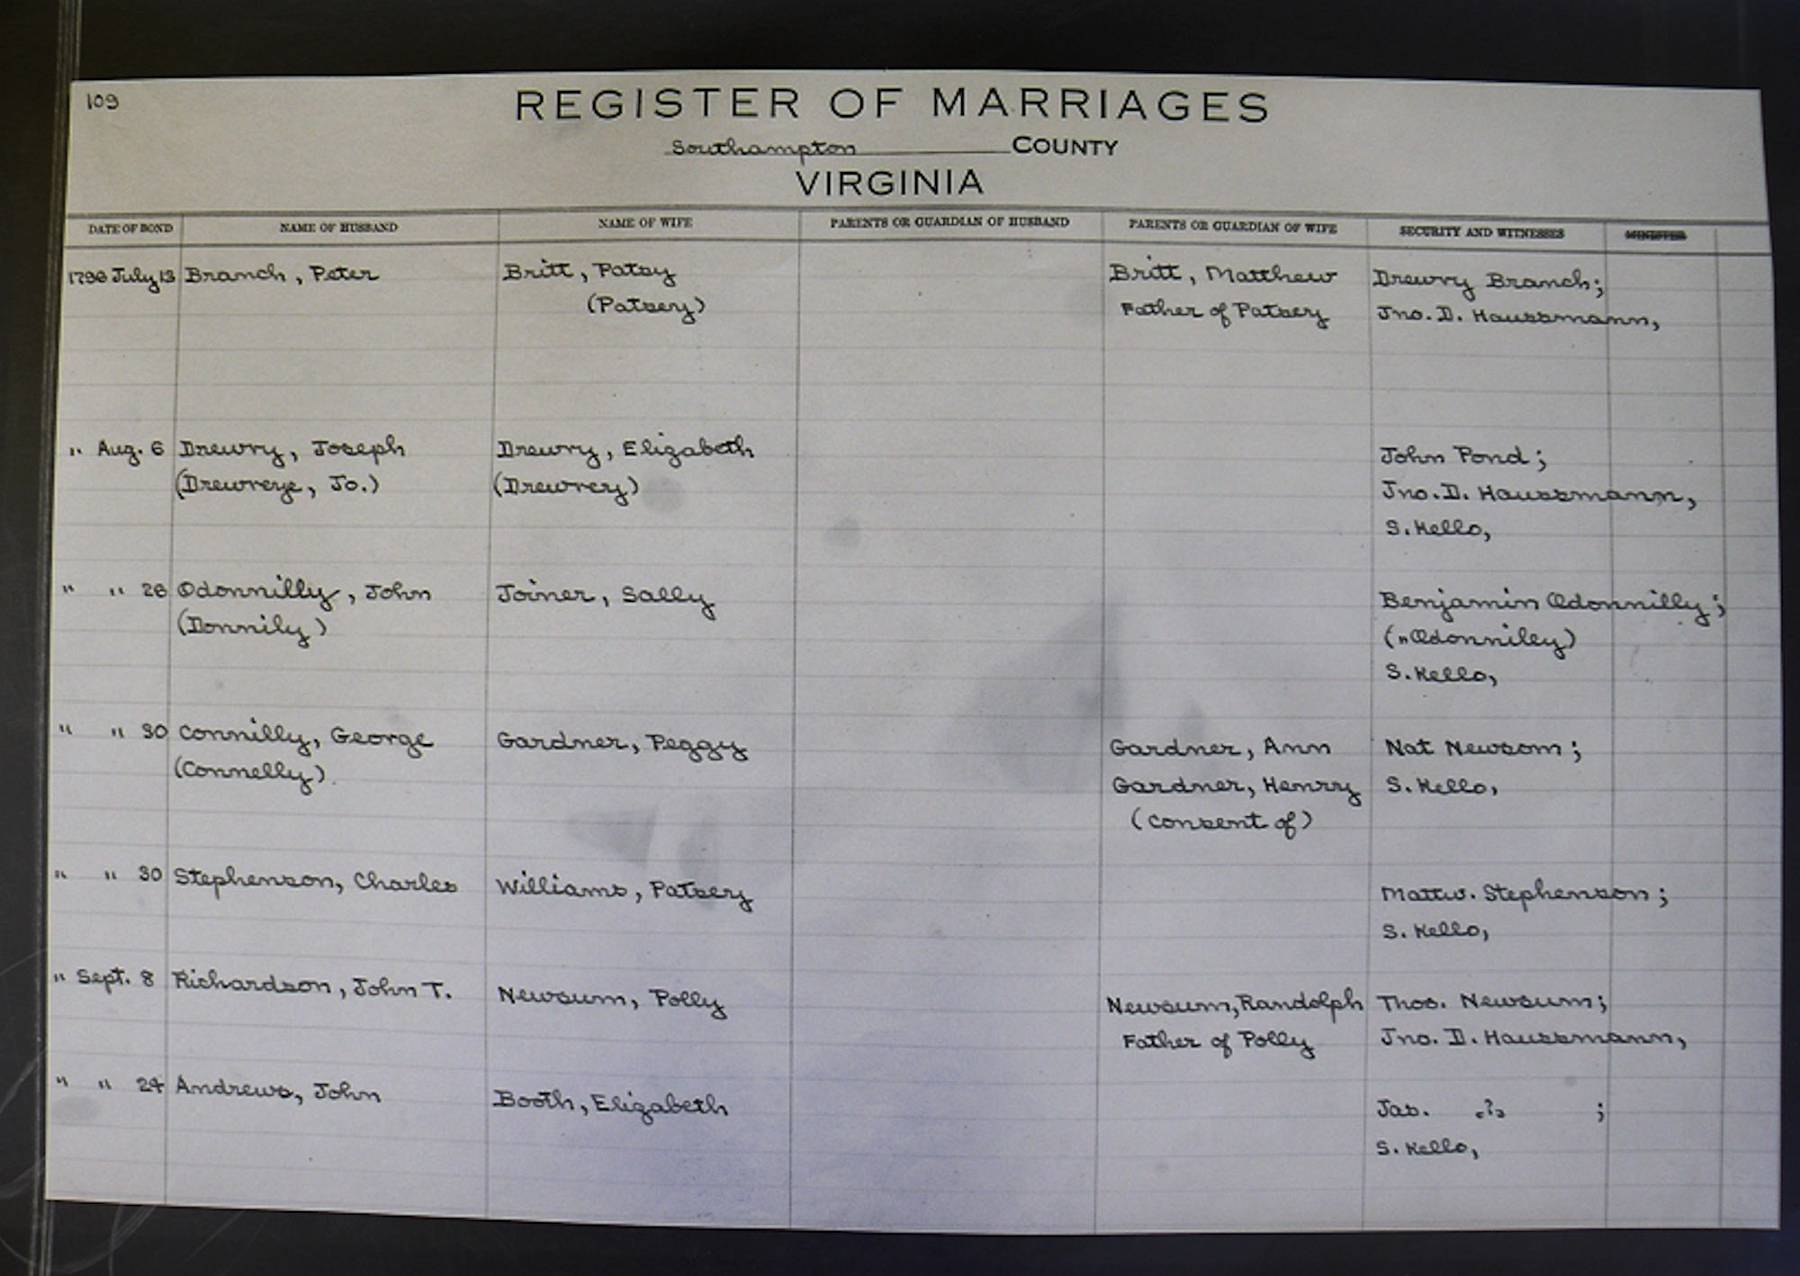 109
REGISTER OF MARRIAGES
Southampton COUNTY
VIRGINIA
DATE OF BOND NAME OF HUSBAND NAME OF WIFE PARENTS OR GUARDIAN OF HUSBAND PARENTS OR GUARDIAN OF WIFE SECURITY AND WITNESSES MINISTER
1798 July 13 Branch, Peter Britt, Patsy Britt, Matthew Drewry Branch;
(Patsey) Father of Patsey Jno. D. Haussmann,
" Aug. 6 Drewry, Joseph Drewry, Elizabeth John Pond;
(Drewreye, Jo.) (Drewrey) Jno. D. Haussmann,
S. Kello,
" " 28 Odonnilly, John Joiner, Sally Benjamin Odonnilly;
(Donnily) (" Odonniley)
S. Kello,
" " 30 Connilly, George Gardner, Peggy Gardner, Ann Nat Newsom;
(Connelly) Gardner, Henrry S. Kello,
(consent of)
" " 30 Stephenson, Charles Williams, Patsey Mattw. Stephenson;
S. Kello,
" Sept. 8 Richardson, John T. Newsum, Polly Newsum, Randolph Thos. Newsum;
Father of Polly Jno. D. Haussmann,
" " 24 Andrews, John Booth, Elizabeth Jas. ? ;
S. Kello,